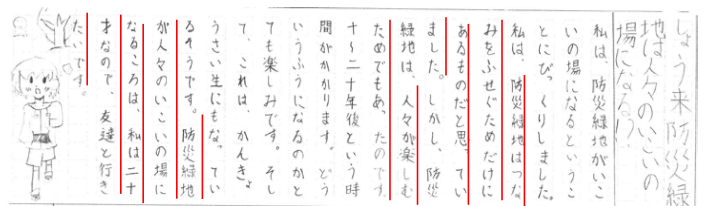 しょう来防災緑
地は人々のいこいの
場になる!?
私は、防災緑地がいこ
いの場になるというこ
とにびっくりしました。
私は、防災緑地はつな
みをふせぐためだけに
あるものだと思ってい
ました。しかし、防災
緑地は、人々が楽しむ
ためでもあったのです。
十〜二十年後という時
間がかかります。どう
いうふうになるのかと
ても楽しみです。そし
て、これは、かんきょ
うさい生にもなってい
るそうです。防災緑地
が人々のいこいの場に
なるころは、私は二十
才なので、友達と行き
たいです。